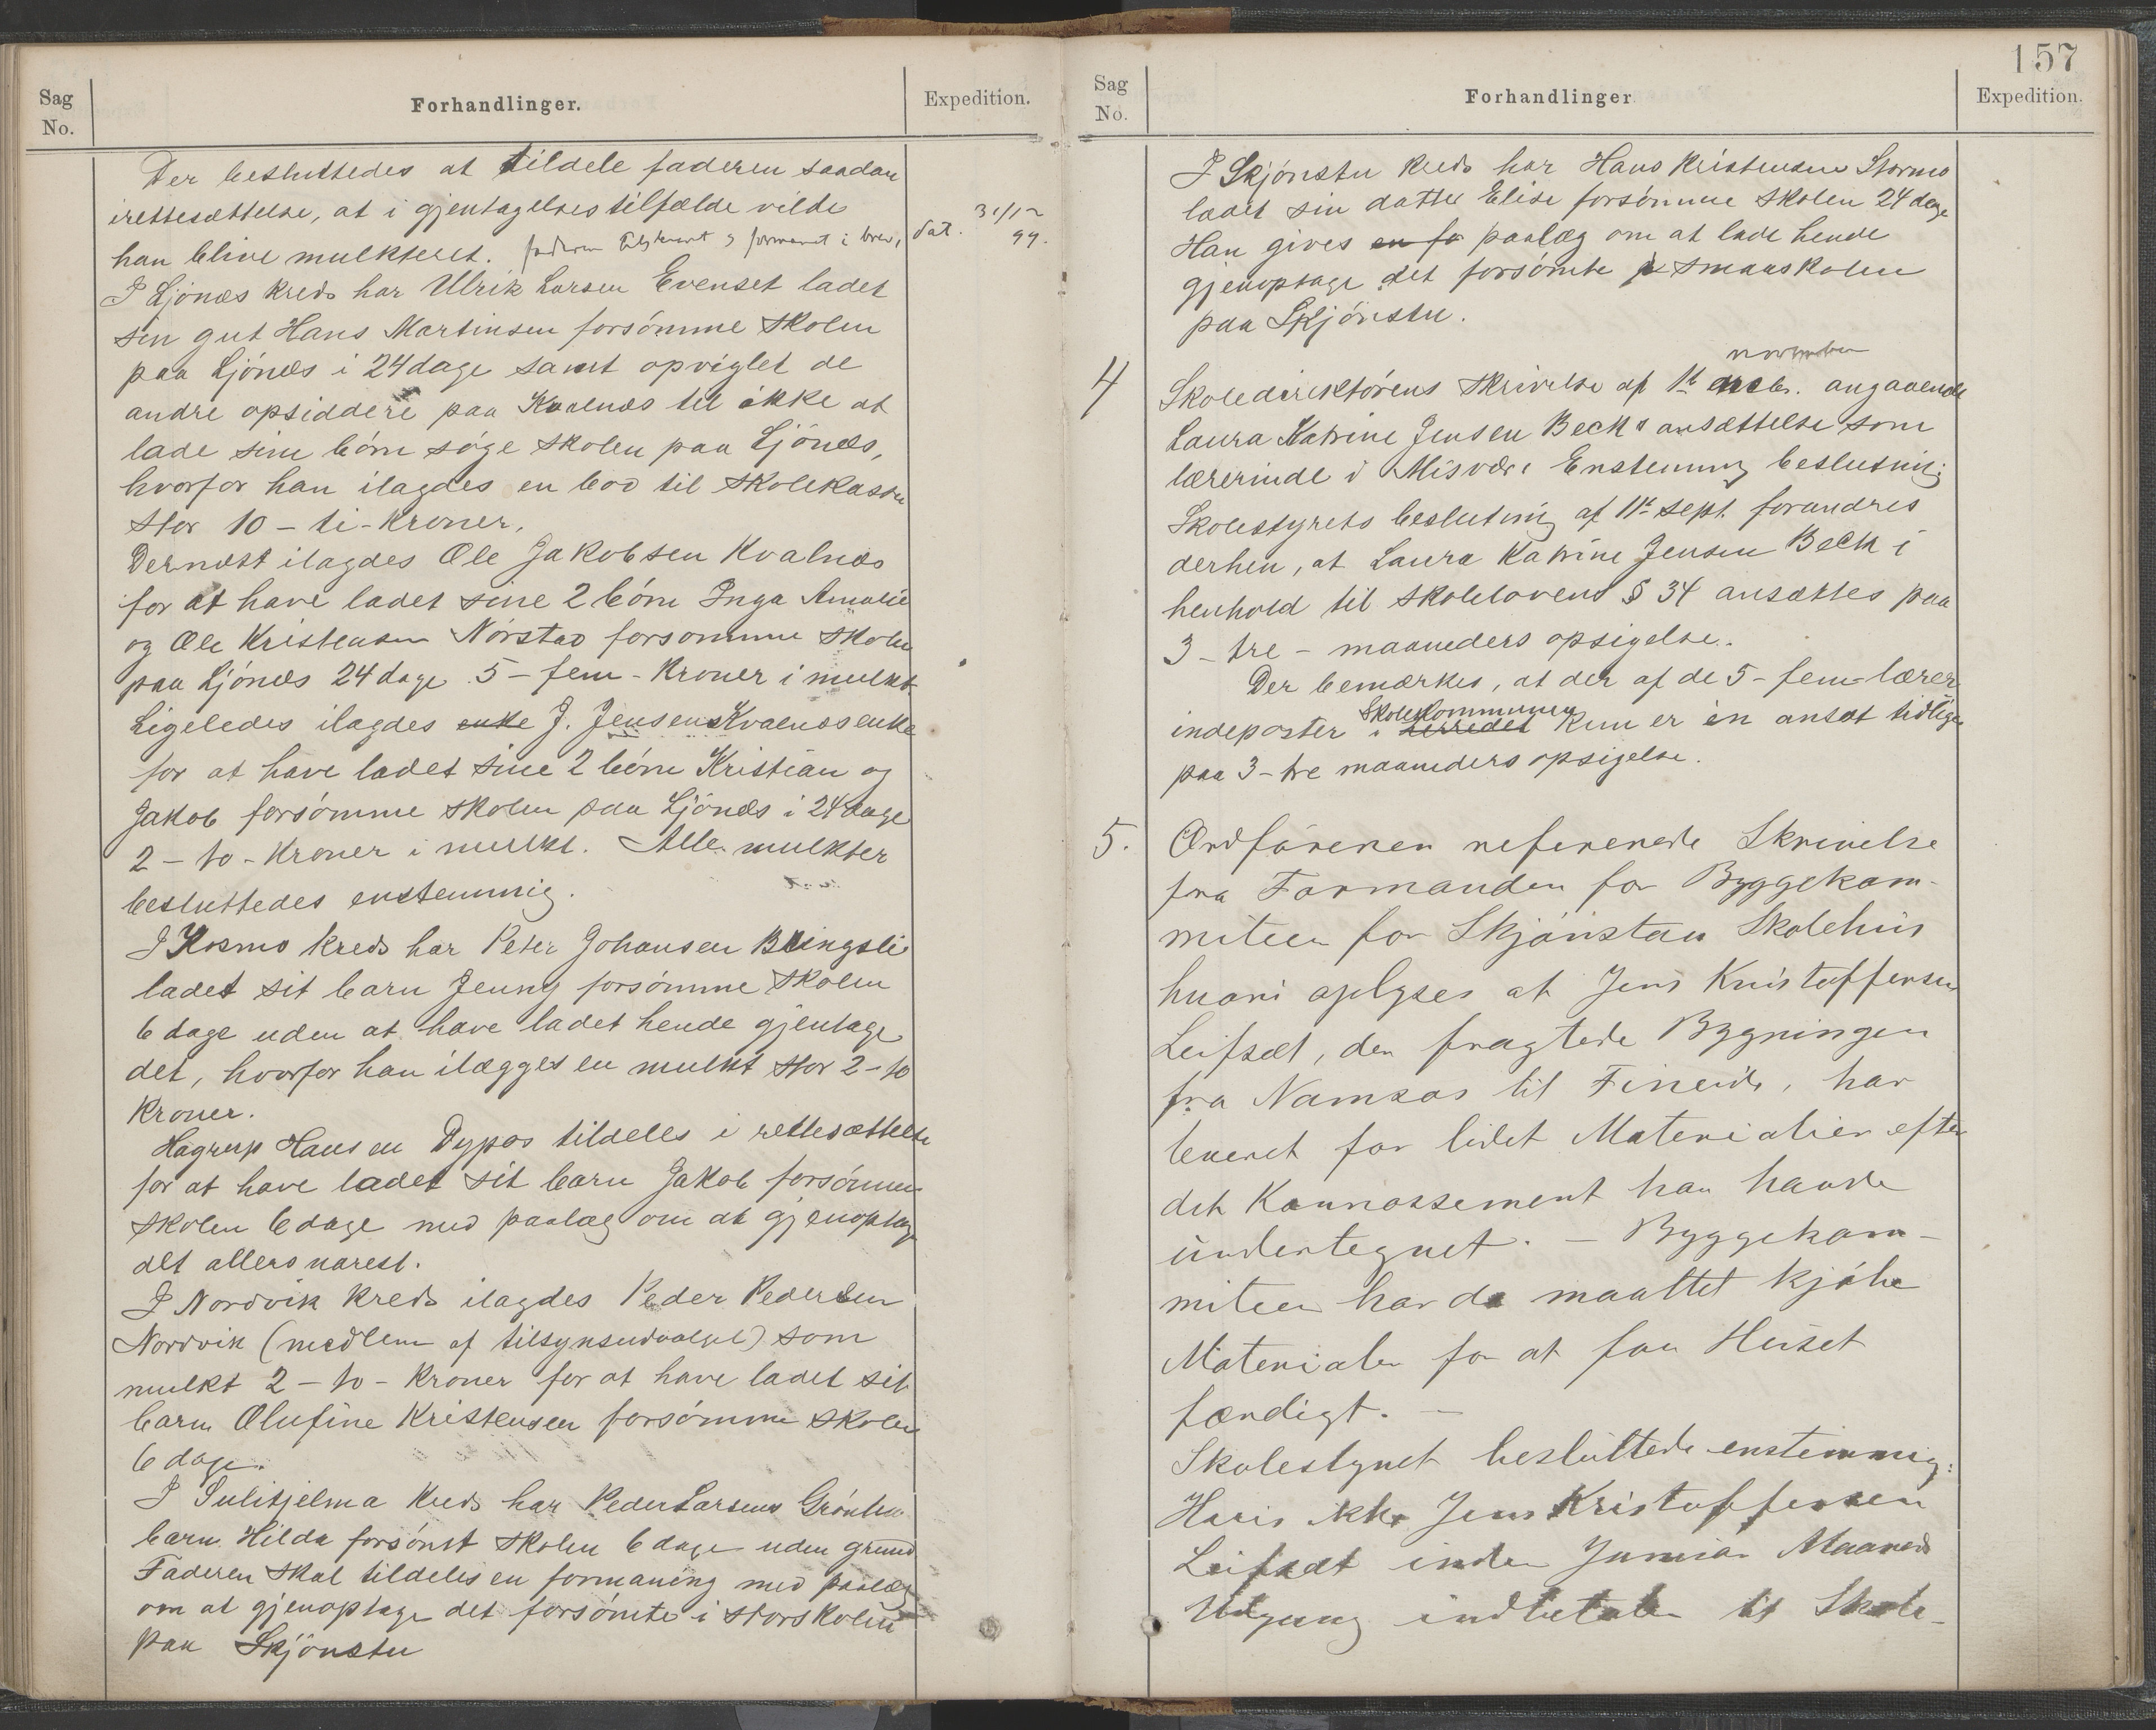 Sag
No.
Forhandlinger.
Expedition.
Der besluttedes at tildele faderen saadan
irettesættelse, at i gjentagelsestilfælde vilde
han blive mulkteret. faderen tilskrevet & formanet i brev,
dat. 31/12
99.
I Ljönæs kreds har Ulrik Larsen Evenset ladet
sin gut Hans Martinsen forsömme skolen
paa Ljönæs i 24 dage samt opviglet de
andre opsiddere paa Kvalnæs til ikke at
lade sine börn söge skolen paa Ljönæs,
hvorfor han ilagdes en bod til skolekassen
stor 10 - ti - kroner.
Dernæst ilagdes Ole Jakobsen Kvalnæs
for at have ladet sine 2 börn Inga Amalie
og Ole Kristensen Nörstad forsömme skolen
paa Ljönæs 24 dage 5 - fem - kroner i mulkt.
Ligeledes ilagdes enke J. Jensens Kvalnæs enke
for at have ladet sine 2 börn Kristian og
Jakob forsömme skolen paa Ljönæs i 24 dage
2 - to - kroner i mulkt. Alle mulkter
besluttedes enstemmig.
I Kosmo kreds har Peter Johansen Blingsli
ladet sit barn Jenny forsömme skolen
6 dage uden at have ladet hende gjentage
det, hvorfor han ilægges en mulkt stor 2 - to
kroner.
Hagrup Hansen Dypos tildeles irettesættelse
for at have ladet sit barn Jakob forsömme
skolen 6 dage med paalæg om at gjenoptage
det allersnarest.
I Nordvik kreds ilagdes Peder Pedersen
Nordvik (medlem af tilsynsudvalget) som
mulkt 2 - to - kroner for at have ladet sit
barn Olufine Kristensen forsömme skolen
6 dage.
I Sulitjelma kreds har Peder Larsens Grönli
barn Hilda forsömt skolen 6 dage uden grund
Faderen skal tildeles en formaning med paalæg
om at gjenoptage det forsömte i storskolen
paa Skjönstu
157
Sag
No.
Forhandlinger
Expedition.
I Skjönstu kreds har Hans Kristensen Stormo
ladet sin datter Elise forsömme skolen 24 dage
Han gives en fo paalæg om at lade hende
gjenoptage det forsömte i smaaskolen
paa Skjönstu.
november
4 Skoledirektörens skrivelse af 1st decbr. angaaende
Laura Katrine Jensen Beck's ansættelse som
lærerinde i Misvær. Enstemmig beslutning:
Skolestyrets beslutning af 11te sept. forandres
derhen, at Laura Katrine Jensen Beck i
henhold til skolelovens § 34 ansættes paa
3 - tre - maaneders opsigelse.
Der bemærkes, at der af de 5 - fem - lærer-
Skolekommunen
indeposter i herredet kun er en ansat tidligere
paa 3 - tre maaneders opsigelse.
5. Ordföreren refererede Skrivelse
fra Formanden for Byggekom-
miteen for Skjönstaa Skolehus
hvori oplyses at Jens Kristoffersen
Leifsæt, der fragtede Bygningen
fra Namsos til Fineide, har
leveret for lidet Materialier efter
det Konnossement han havde
undertegnet. - Byggekom-
miteen har da maattet kjöbe
Materialer for at faa Huset
færdigt. -
Skolestyret besluttede enstemmig:
Hvis ikke Jens Kristoffersen
Leifsæt inden Januar Maaneds
Udgang indbetaler til Skole-